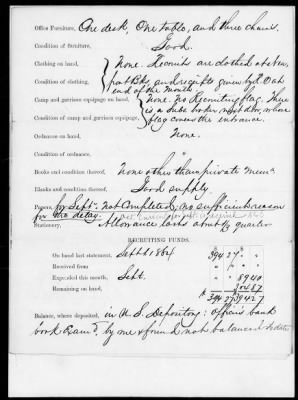 Office Furniture, One desk, One table, and three chairs.
Condition of furniture, Good.
Clothing on hand, None. Recruits are clothed at
Condition of clothing, and receipts given by
end of the month.
Camp and garrison equipage on hand, None. No Recruiting flag. There
is a next door, whose
Condition of camp and garrison equipage, flag covers the entrance.
Ordnance on hand, None.
Condition of ordnance,
Books and condition thereof, None other than private
Blanks and condition thereof, Good supply
Papers, for Sept. not completed, no sufficient reason
for the delay.
Stationery, Allowance
RECRUITING FUNDS.
On hand last statement, Sept 1864 394 27
Received from
Expended this month, Sept. 89 40
Remaining on hand, 304 87
394 27 394 27
Balance, where deposited, in U.S. Depository: Officers bank
book Exam'd by me & found not balanced